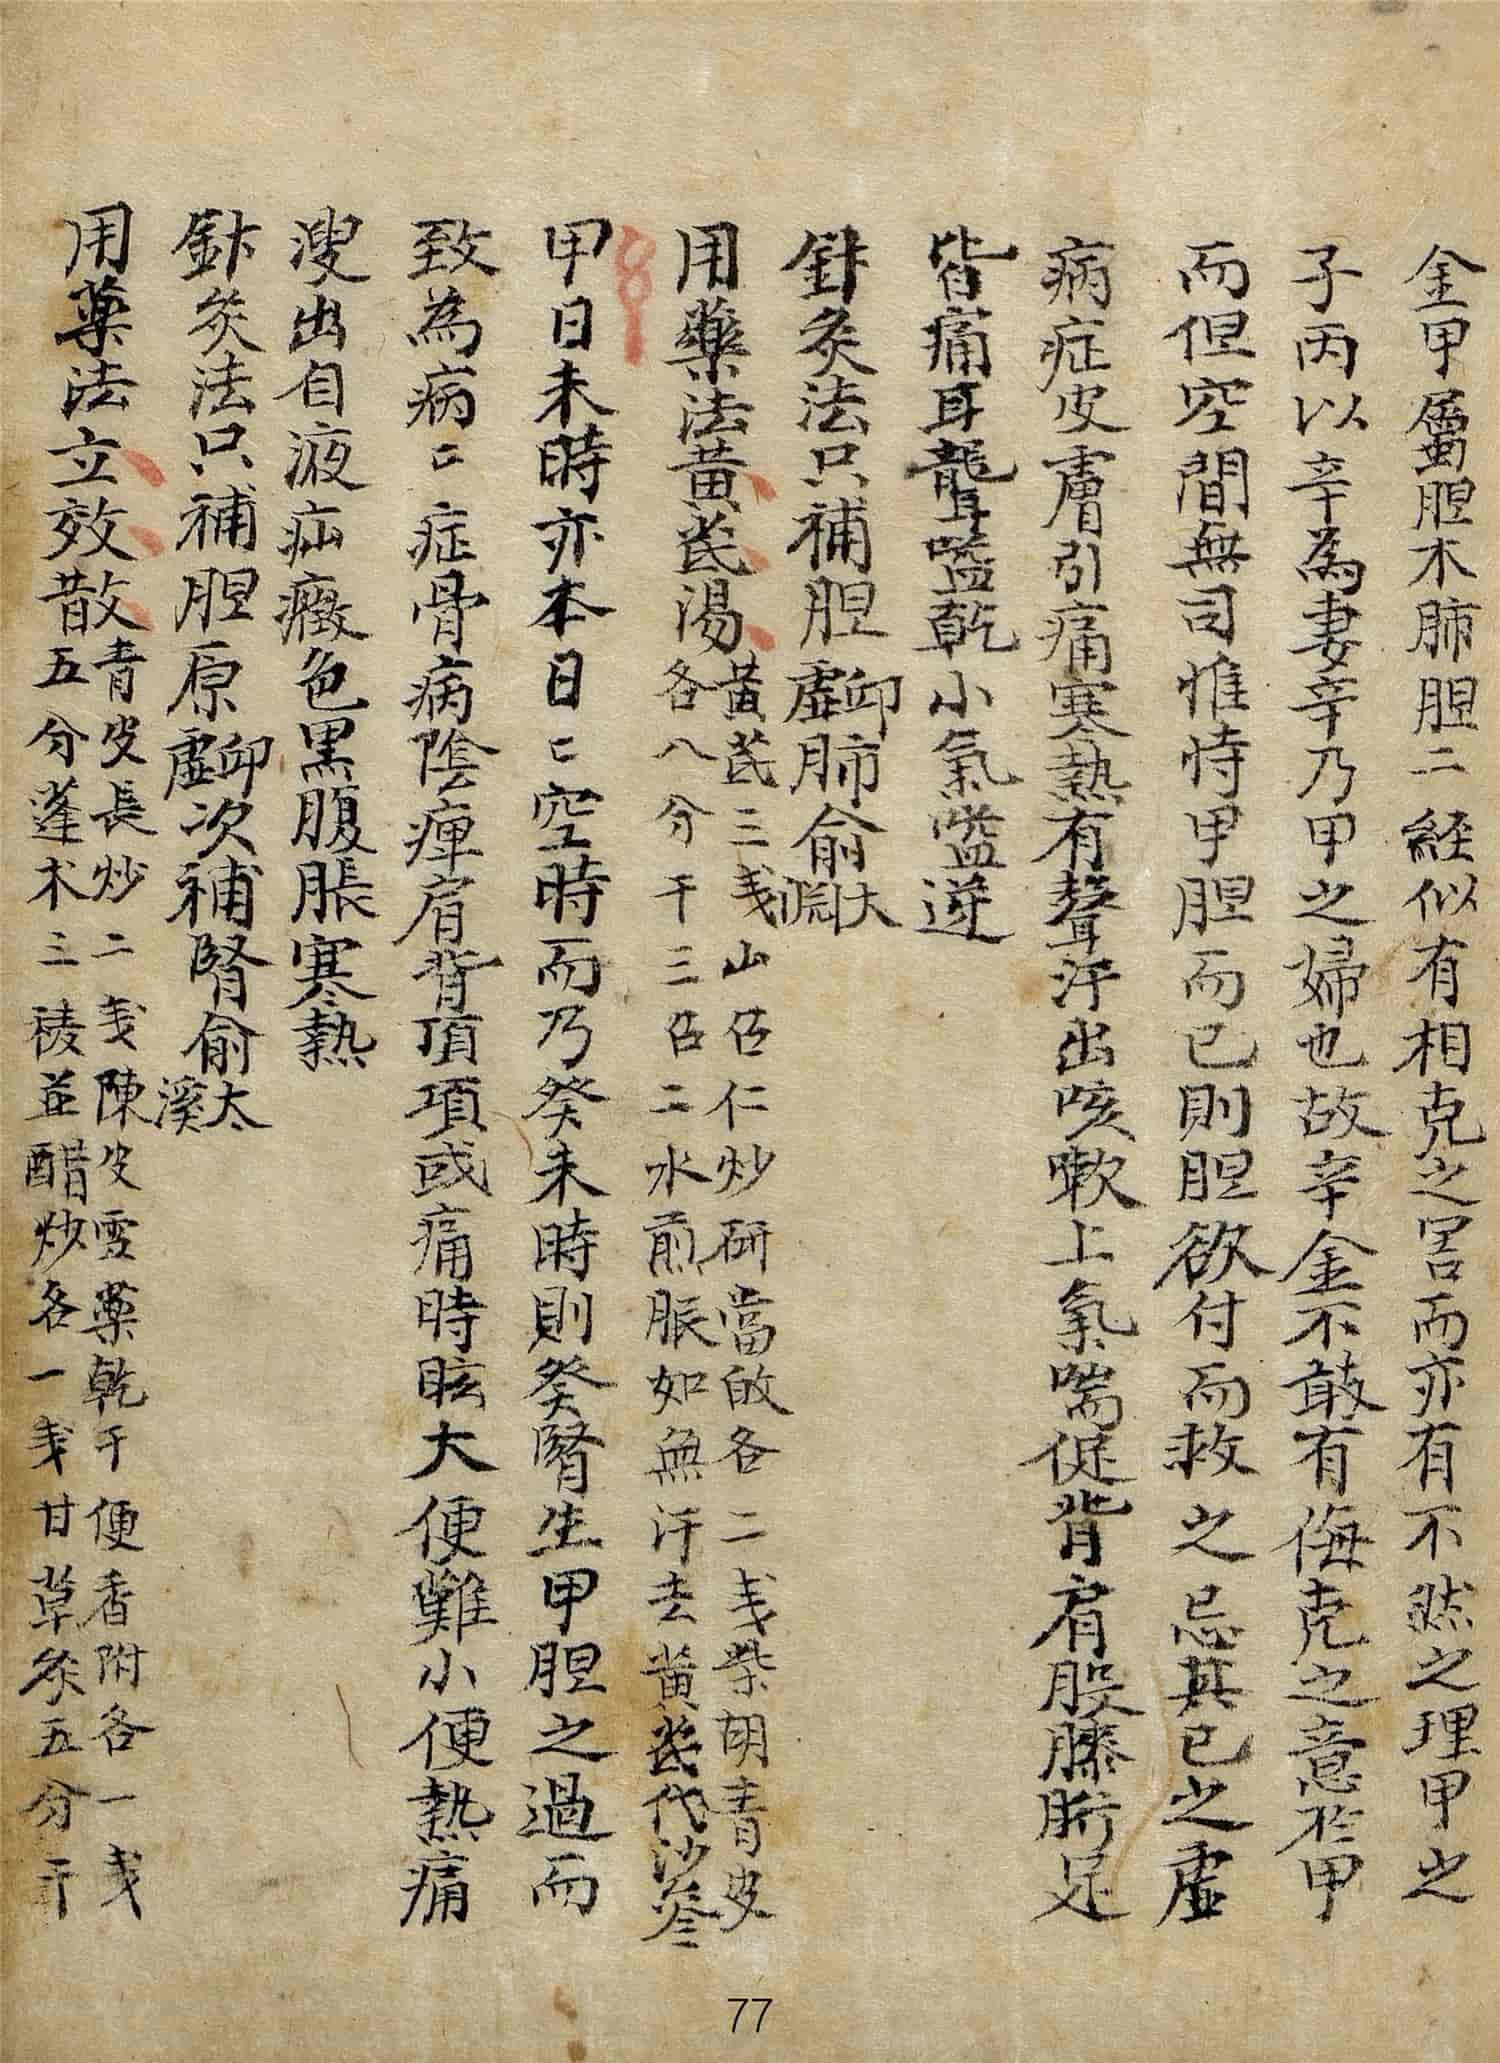 金甲屬胆木肺胆二経似有相克之害而亦有不然之理甲之
子丙以辛為妻辛乃甲之婦也故辛金不敢有侮克之意於甲
而但空間無司惟恃甲胆而已則胆欲付而救之忌其已之虛
病症皮膚引痛寒熱有聲汗出咳嗽上氣喘促背肩股膝胻足
皆痛耳聾嗌乾小氣嗌逆
針灸法只補胆虛卬肺俞大淵
用藥法黃芪湯黃芪三戔山召仁炒研當的各二戔柴胡青皮
各八分干三召二水煎服如無汗去黃芪代沙參
甲日未時亦本日〻空時而乃癸未時則癸腎生甲胆之過而
致為病〻症骨病陰痺肩背頂項或痛時眩大便難小便熱痛
溲出白液疝癥色黑腹脹寒熱
針灸法只補胆原虛卬次補腎俞太溪
用藥法立效散青皮長炒二戔陳皮雪藥乾干便香附各一戔
五分蓬朮三稜並醋炒各一戔甘草灸五分干
77